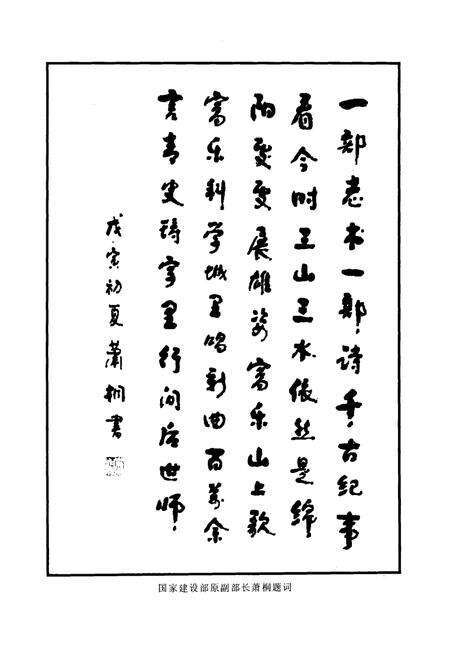 一部志书一部诗千古纪事
看今时三山三水依然是绵
阳處處展雄姿富乐山上歌
富乐科学城里唱新曲百萬余
言青史铸字里行间后世师
戊寅初夏蕭桐書
国家建设部原副部长萧桐题词